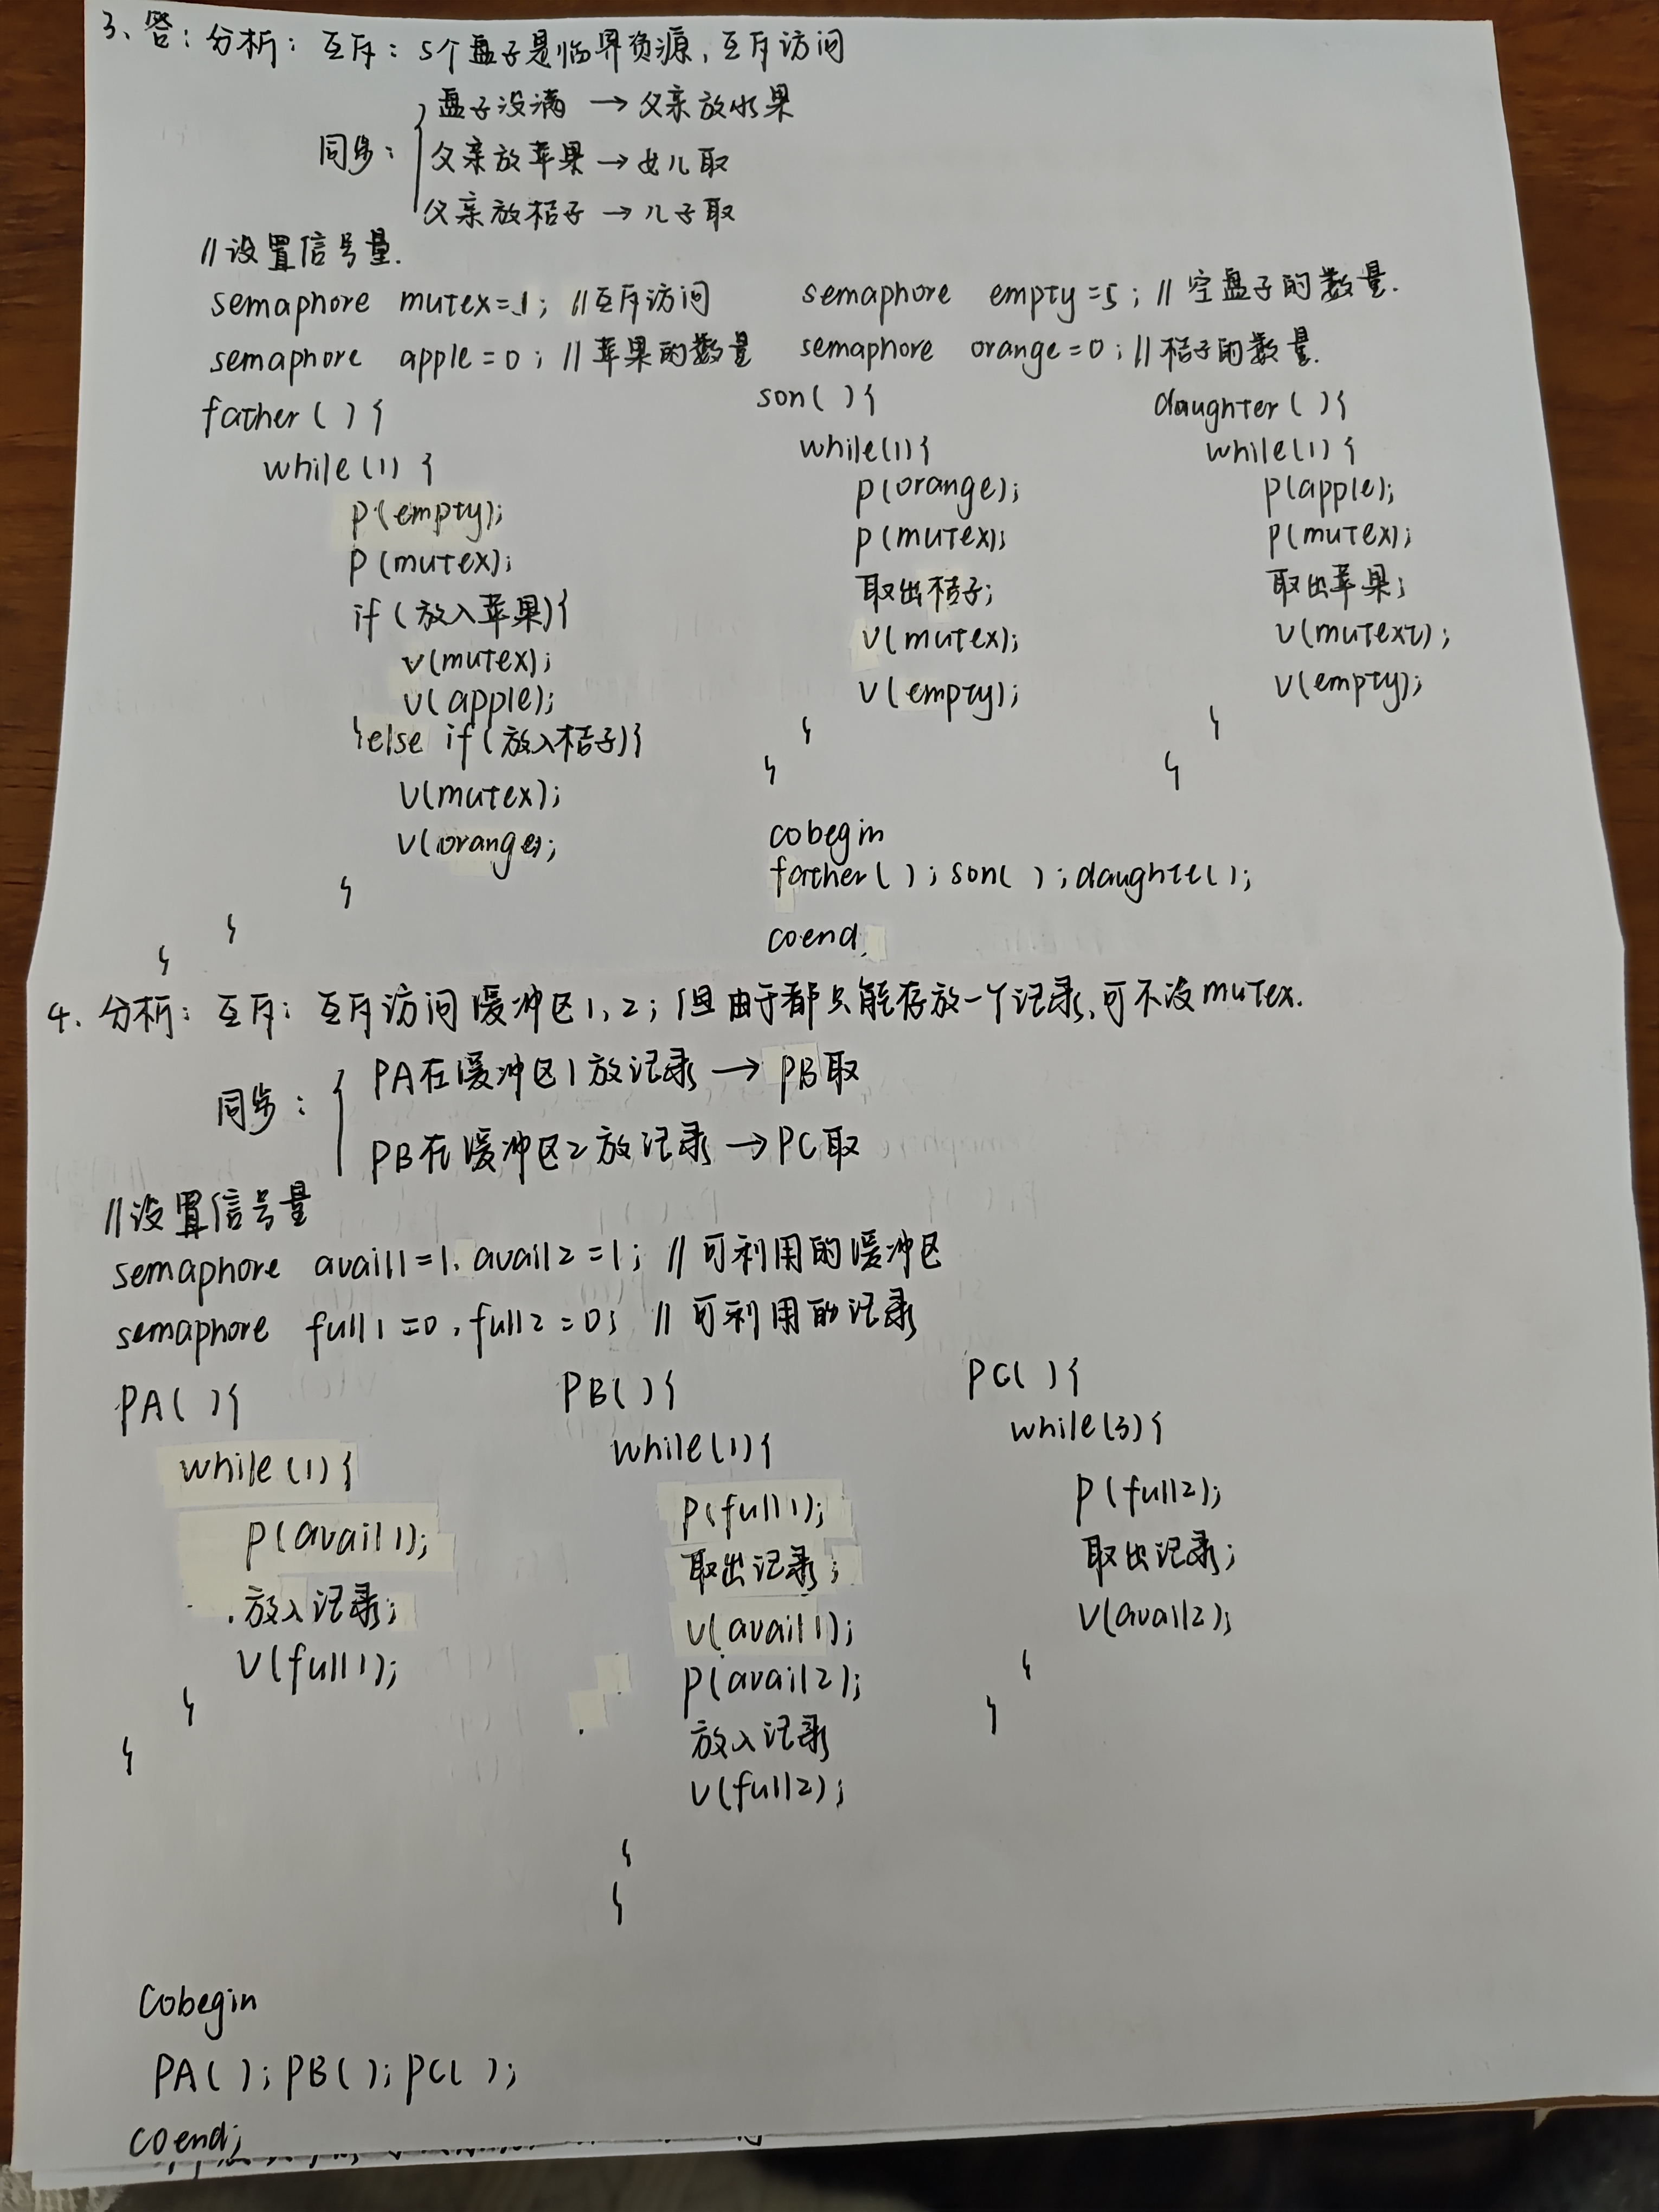 3、答：分析：互斥：5个盘子是临界资源，互斥访问
盘子没满 → 父亲放水果
同步：
父亲放苹果 → 女儿取
父亲放桔子 → 儿子取
//设置信号量.
semaphore mutex=1; //互斥访问 semaphore empty=5; //空盘子的数量.
semaphore apple=0; //苹果的数量 semaphore orange=0; //桔子的数量.
father(){
while(1){
p(empty);
p(mutex);
if(放入苹果){
v(mutex);
v(apple);
}else if(放入桔子){
v(mutex);
v(orange);
}
}
}
son(){
while(1){
p(orange);
p(mutex);
取出桔子;
v(mutex);
v(empty);
}
}
daughter(){
while(1){
p(apple);
p(mutex);
取出苹果;
v(mutext);
v(empty);
}
}
cobegin
father();son();daughte();
coend
4、分析：互斥：互斥访问缓冲区1,2；但由于都只能存放一个记录,可不设mutex.
同步：
PA在缓冲区1放记录 → PB取
PB在缓冲区2放记录 → PC取
//设置信号量
semaphore avail1=1, avail2=1; //可利用的缓冲区
semaphore full1=0, full2=0; //可利用的记录
PA(){
while(1){
p(avail1);
放入记录;
v(full1);
}
}
PB(){
while(1){
p(full1);
取出记录;
v(avail1);
p(avail2);
放入记录
v(full2);
}
}
PC(){
while(3){
p(full2);
取出记录;
v(avail2);
}
}
Cobegin
PA();PB();PC();
coend;